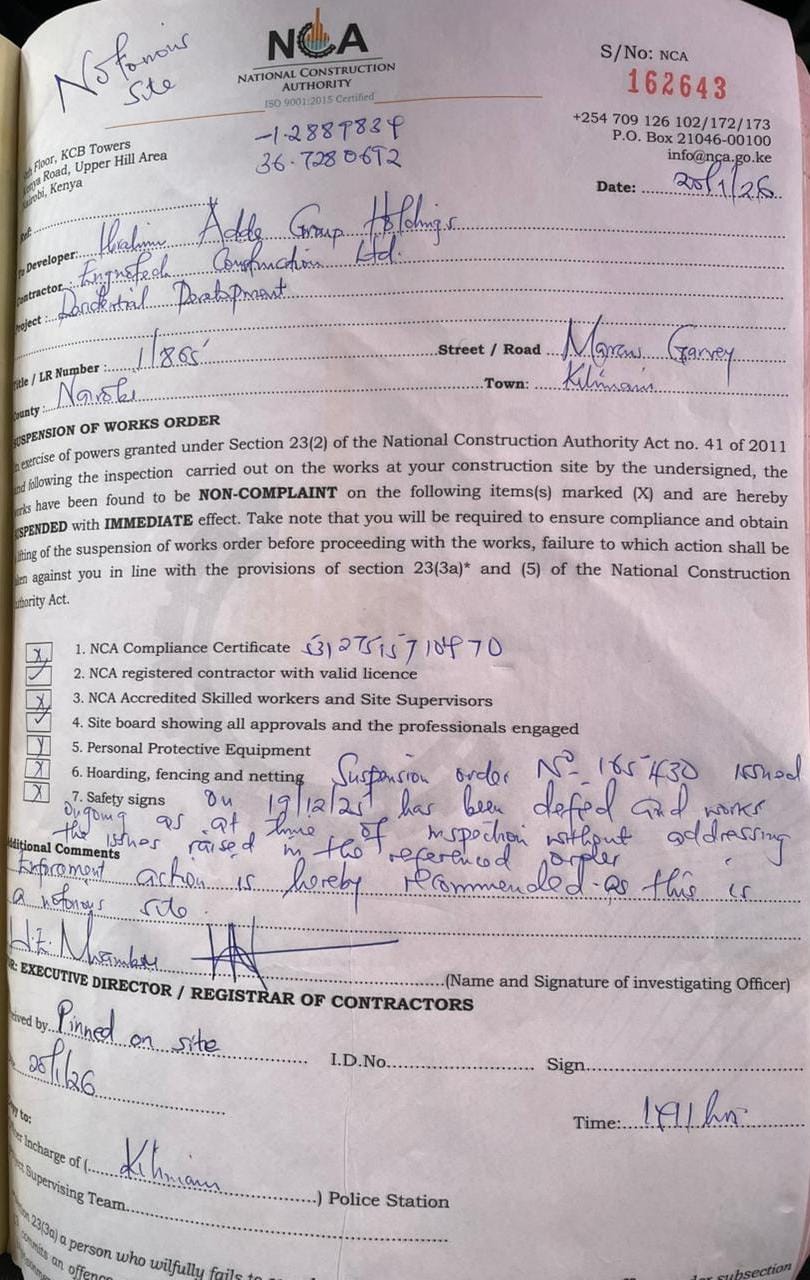 Notorious
Site
NCA
NATIONAL CONSTRUCTION
AUTHORITY
ISO 9001:2015 Certified
S/No: NCA
162643
+254 709 126 102/172/173
P.O. Box 21046-00100
info@nca.go.ke
Floor, KCB Towers
Road, Upper Hill Area
Kenya
-1.2889834
36.7280692
Date: 20/1/26
Ref:
Developer: Ibrahim Adde Group Holdings
Contractor: Construction Ltd.
Project: Development
Title / LR Number : 1/865
Street / Road Marcus Garvey
County: Nairobi
Town: Kilimani
SUSPENSION OF WORKS ORDER
exercise of powers granted under Section 23(2) of the National Construction Authority Act no. 41 of 2011
and following the inspection carried out on the works at your construction site by the undersigned, the
works have been found to be NON-COMPLAINT on the following items(s) marked (X) and are hereby
SUSPENDED with IMMEDIATE effect. Take note that you will be required to ensure compliance and obtain
lifting of the suspension of works order before proceeding with the works, failure to which action shall be
taken against you in line with the provisions of section 23(3a)* and (5) of the National Construction
Authority Act.
X 1. NCA Compliance Certificate
✓ 2. NCA registered contractor with valid licence
X 3. NCA Accredited Skilled workers and Site Supervisors
✓ 4. Site board showing all approvals and the professionals engaged
5. Personal Protective Equipment
X 6. Hoarding, fencing and netting Suspension order No. 165430 issued
X 7. Safety signs on 19/12/25 has been defied and works
ongoing as at time of inspection without addressing
the issues raised in the referenced order
Additional Comments
Enforcement action is hereby recommended as this is
a notorious site.
(Name and Signature of investigating Officer)
FOR: EXECUTIVE DIRECTOR / REGISTRAR OF CONTRACTORS
Received by Pinned on site
I.D.No
Sign
20/1/26
Time: hrs
Copy to:
Incharge of ( Kilimani ) Police Station
Supervising Team
23(3a) a person who wilfully fails to
commits an offence
subsection